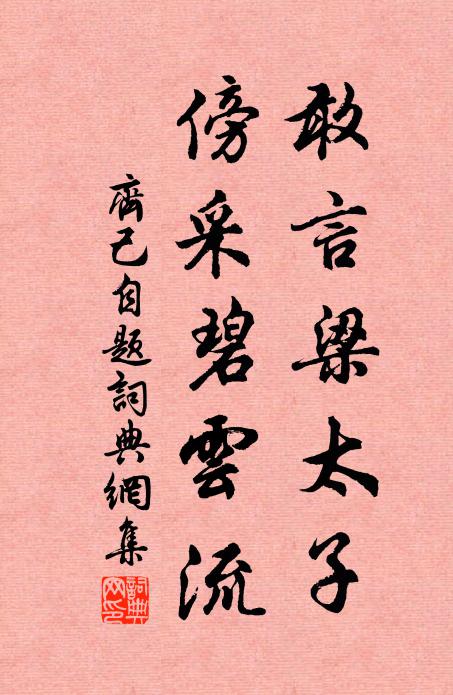 敢言梁太子
傍采碧雲流
齊己自題詞典網集
詞典網印